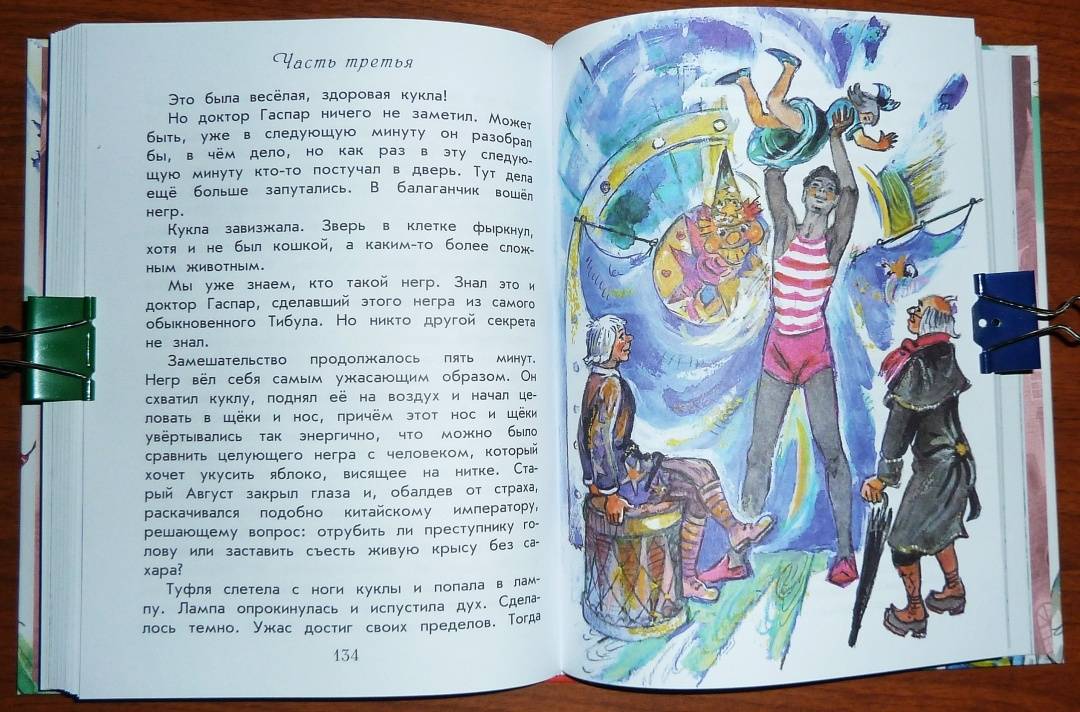 Часть третья
Это была весёлая, здоровая кукла!
Но доктор Гаспар ничего не заметил. Может
быть, уже в следующую минуту он разобрал
бы, в чём дело, но как раз в эту следую-
щую минуту кто-то постучал в дверь. Тут дела
ещё больше запутались. В балаганчик вошёл
негр.
Кукла завизжала. Зверь в клетке фыркнул,
хотя и не был кошкой, а каким-то более слож-
ным животным.
Мы уже знаем, кто такой негр. Знал это и
доктор Гаспар, сделавший этого негра из самого
обыкновенного Тибула. Но никто другой секрета
не знал.
Замешательство продолжалось пять минут.
Негр вёл себя самым ужасающим образом. Он
схватил куклу, поднял её на воздух и начал це-
ловать в щёки и нос, причём этот нос и щёки
увёртывались так энергично, что можно было
сравнить целующего негра с человеком, который
хочет укусить яблоко, висящее на нитке. Ста-
рый Август закрыл глаза и, обалдев от страха,
раскачивался подобно китайскому императору,
решающему вопрос: отрубить ли преступнику го-
лову или заставить съесть живую крысу без са-
хара?
Туфля слетела с ноги куклы и попала в лам-
пу. Лампа опрокинулась и испустила дух. Сдела-
лось темно. Ужас достиг своих пределов. Тогда
134